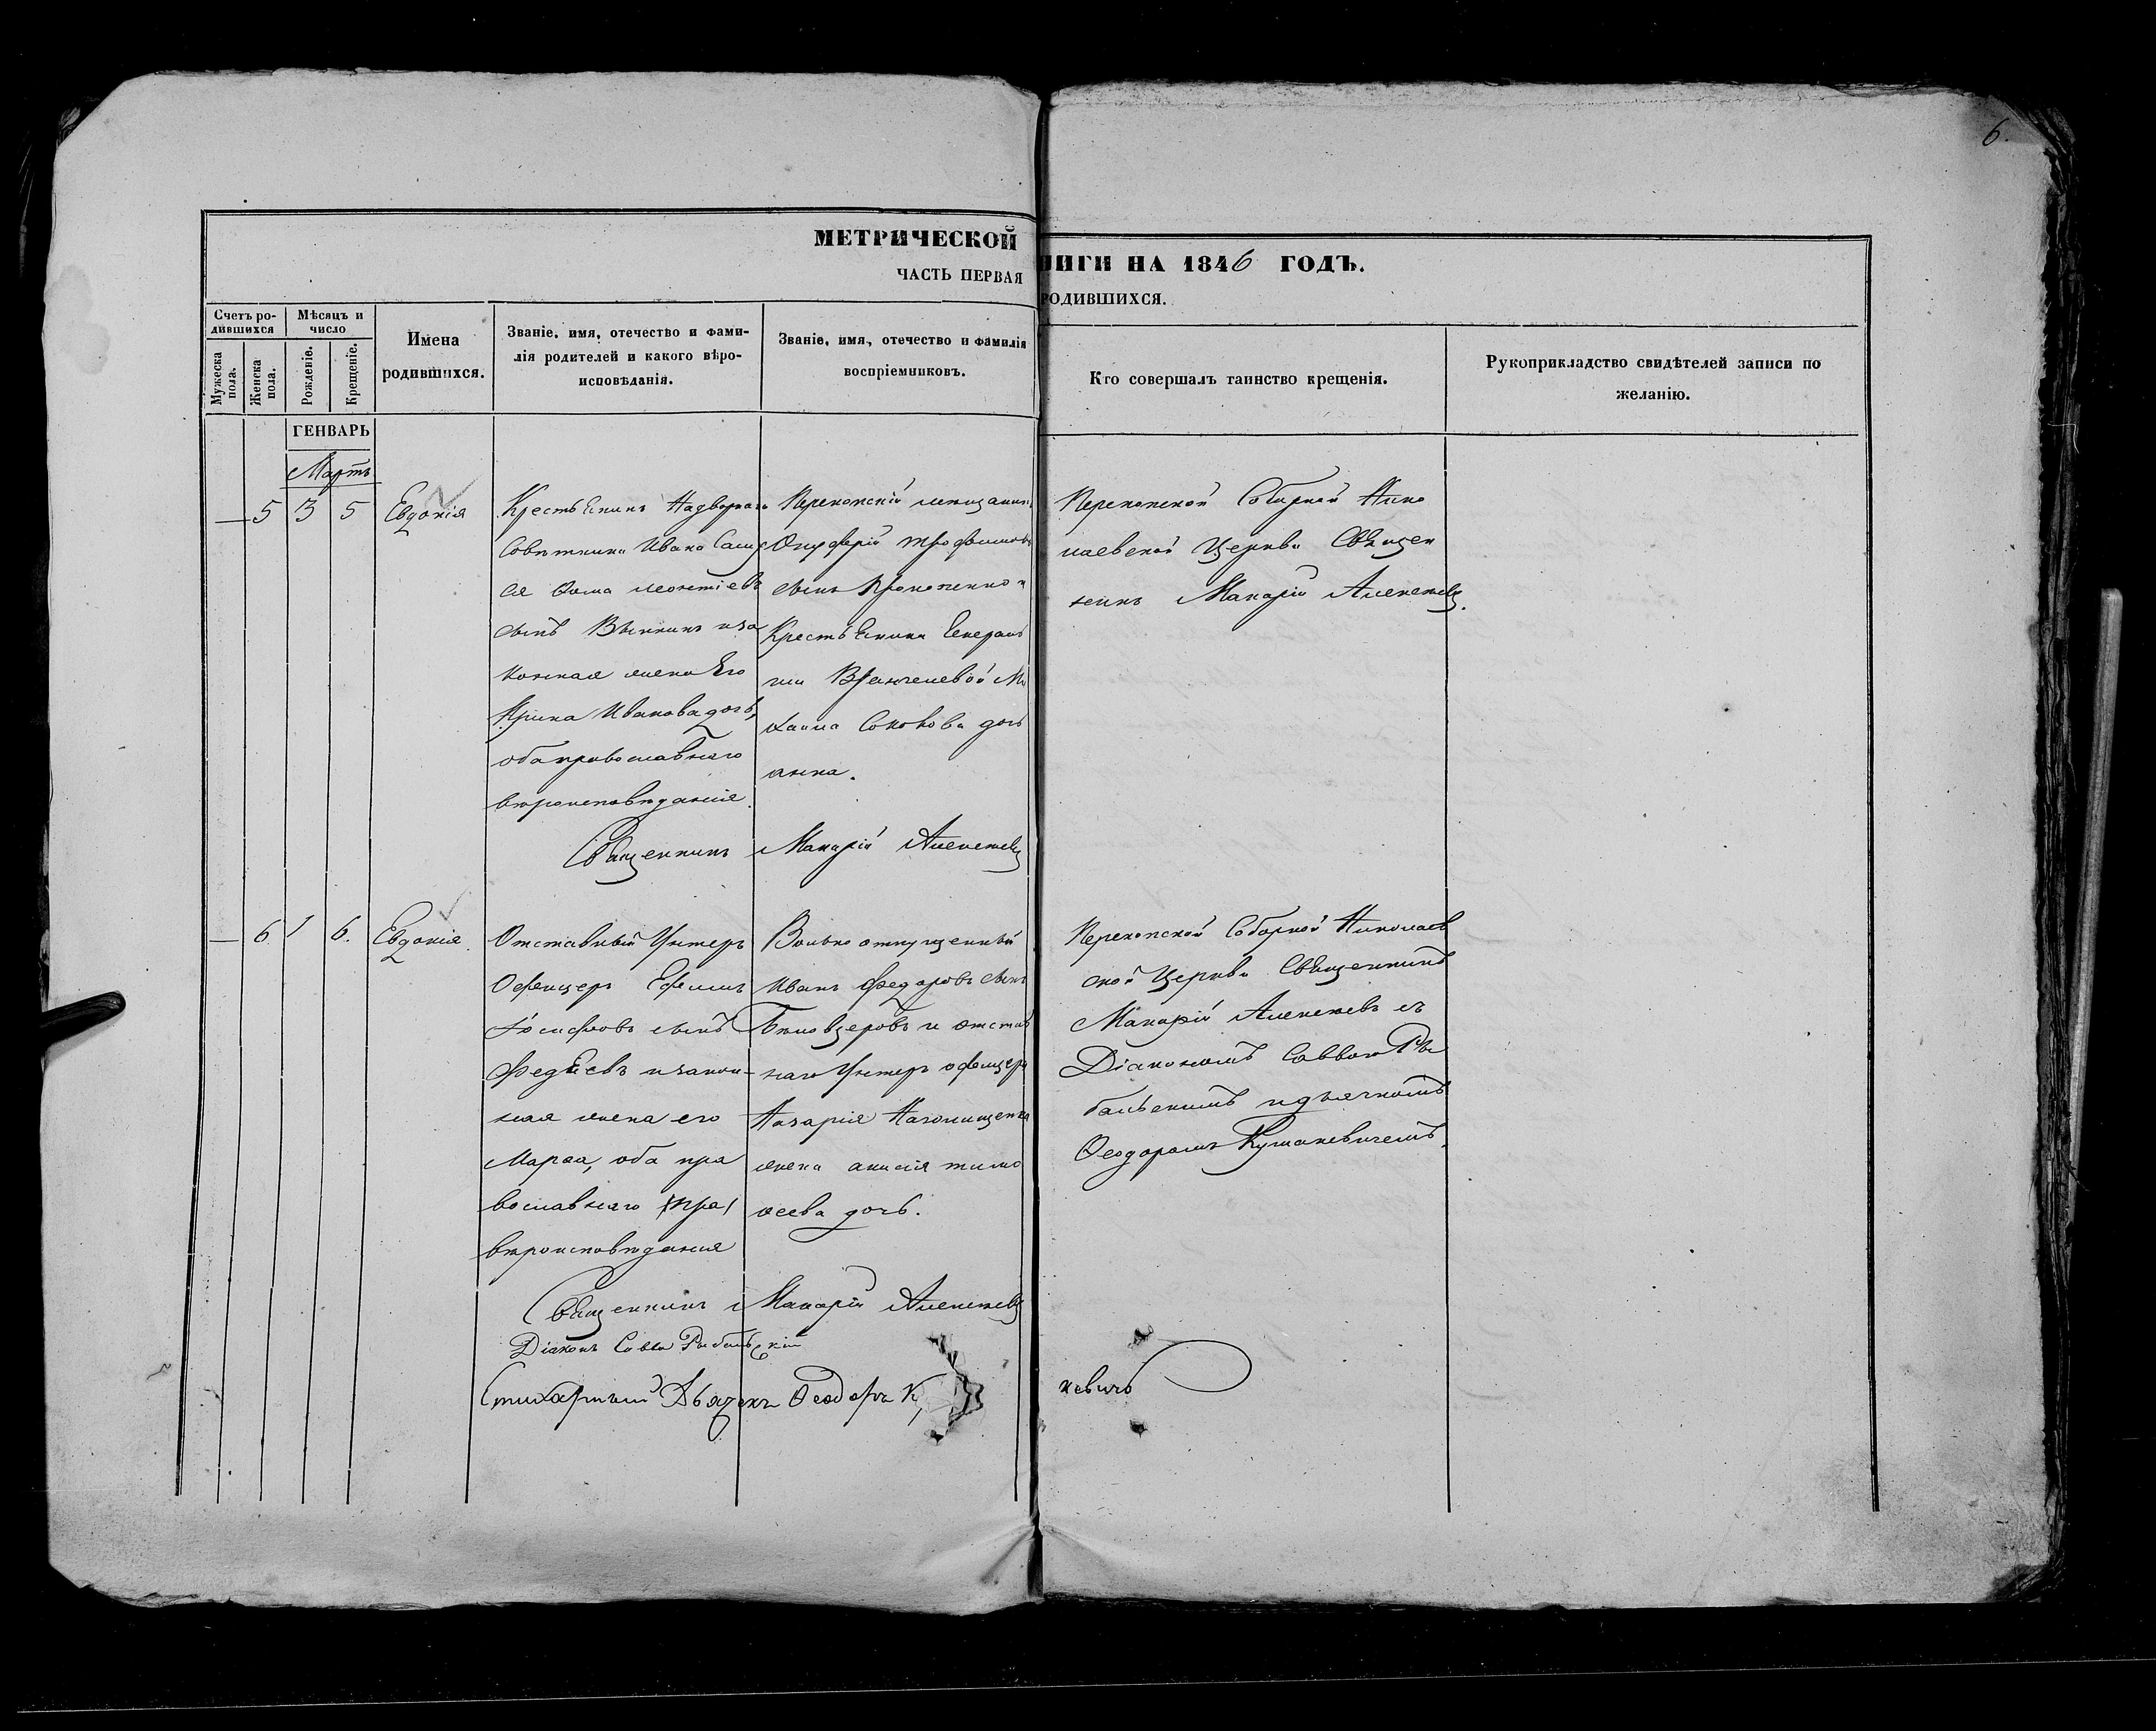 6.
МЕТРИЧЕСКОЙ
НИГИ НА 1846 ГОДЪ.
ЧАСТЬ ПЕРВАЯ
РОДИВШИХСЯ.
Счетъ ро-
дившихся
Мужеска
пола.
Женска
пола.
Мѣсяцъ и
число
Рожденіе.
Крещеніе.
Имена
родившихся.
Званіе, имя, отечество и фами-
лія родителей и какого вѣро-
исповѣданія.
Званіе, имя, отечество и фамилія
воспріемниковъ.
Кто совершалъ таинство крещенія.
Рукоприкладство свидѣтелей записи по
желанію.
ГЕНВАРЬ
Мартъ
— 5 3 5
Евдокія
Крестьянинъ Надворнаго
Совѣтника Ивана
Ѳома Леонтіевъ
сынъ иза
конная жена Его
Ирина Иванова дочь,
оба православнаго
вѣроисповѣданія.
Перекопскій мещанин
Онуфрій Трофимовъ
сынъ Прокопенко и
Крестьянина Генераль
ши Врангелевой Ми
хаила дочь
анна.
Перекопской Соборной Нико
лаевской Церкви Священ
никъ Макарій Алексѣевъ.
Священникъ Макарій Алексѣевъ
— 6. 1 6.
Евдокія.
Отставный Унтеръ
Офицеръ Ефимъ
Іосифовъ сынъ
Федѣевъ и закон-
ная жена его
Марѳа, оба пра
вославнаго (пра)
вѣроисповѣданія
Вольно отпущенный
Иванъ Федоровъ сынъ
и отстав
наго Унтеръ офицера
Назарія
жена акилія тимо
ѳеева дочь.
Перекопской Соборной Николаев
ской Церкви Священникъ
Макарій Алексѣевъ съ
Діакономъ Саввою Ры
бальскимъ и дьячкомъ
Ѳеодоромъ Кушакевичемъ.
Священникъ Макарій Алексѣевъ
Діаконъ Савва Рыбальскій
Стихарный Дьячекъ Ѳеодоръ К
кевичъ